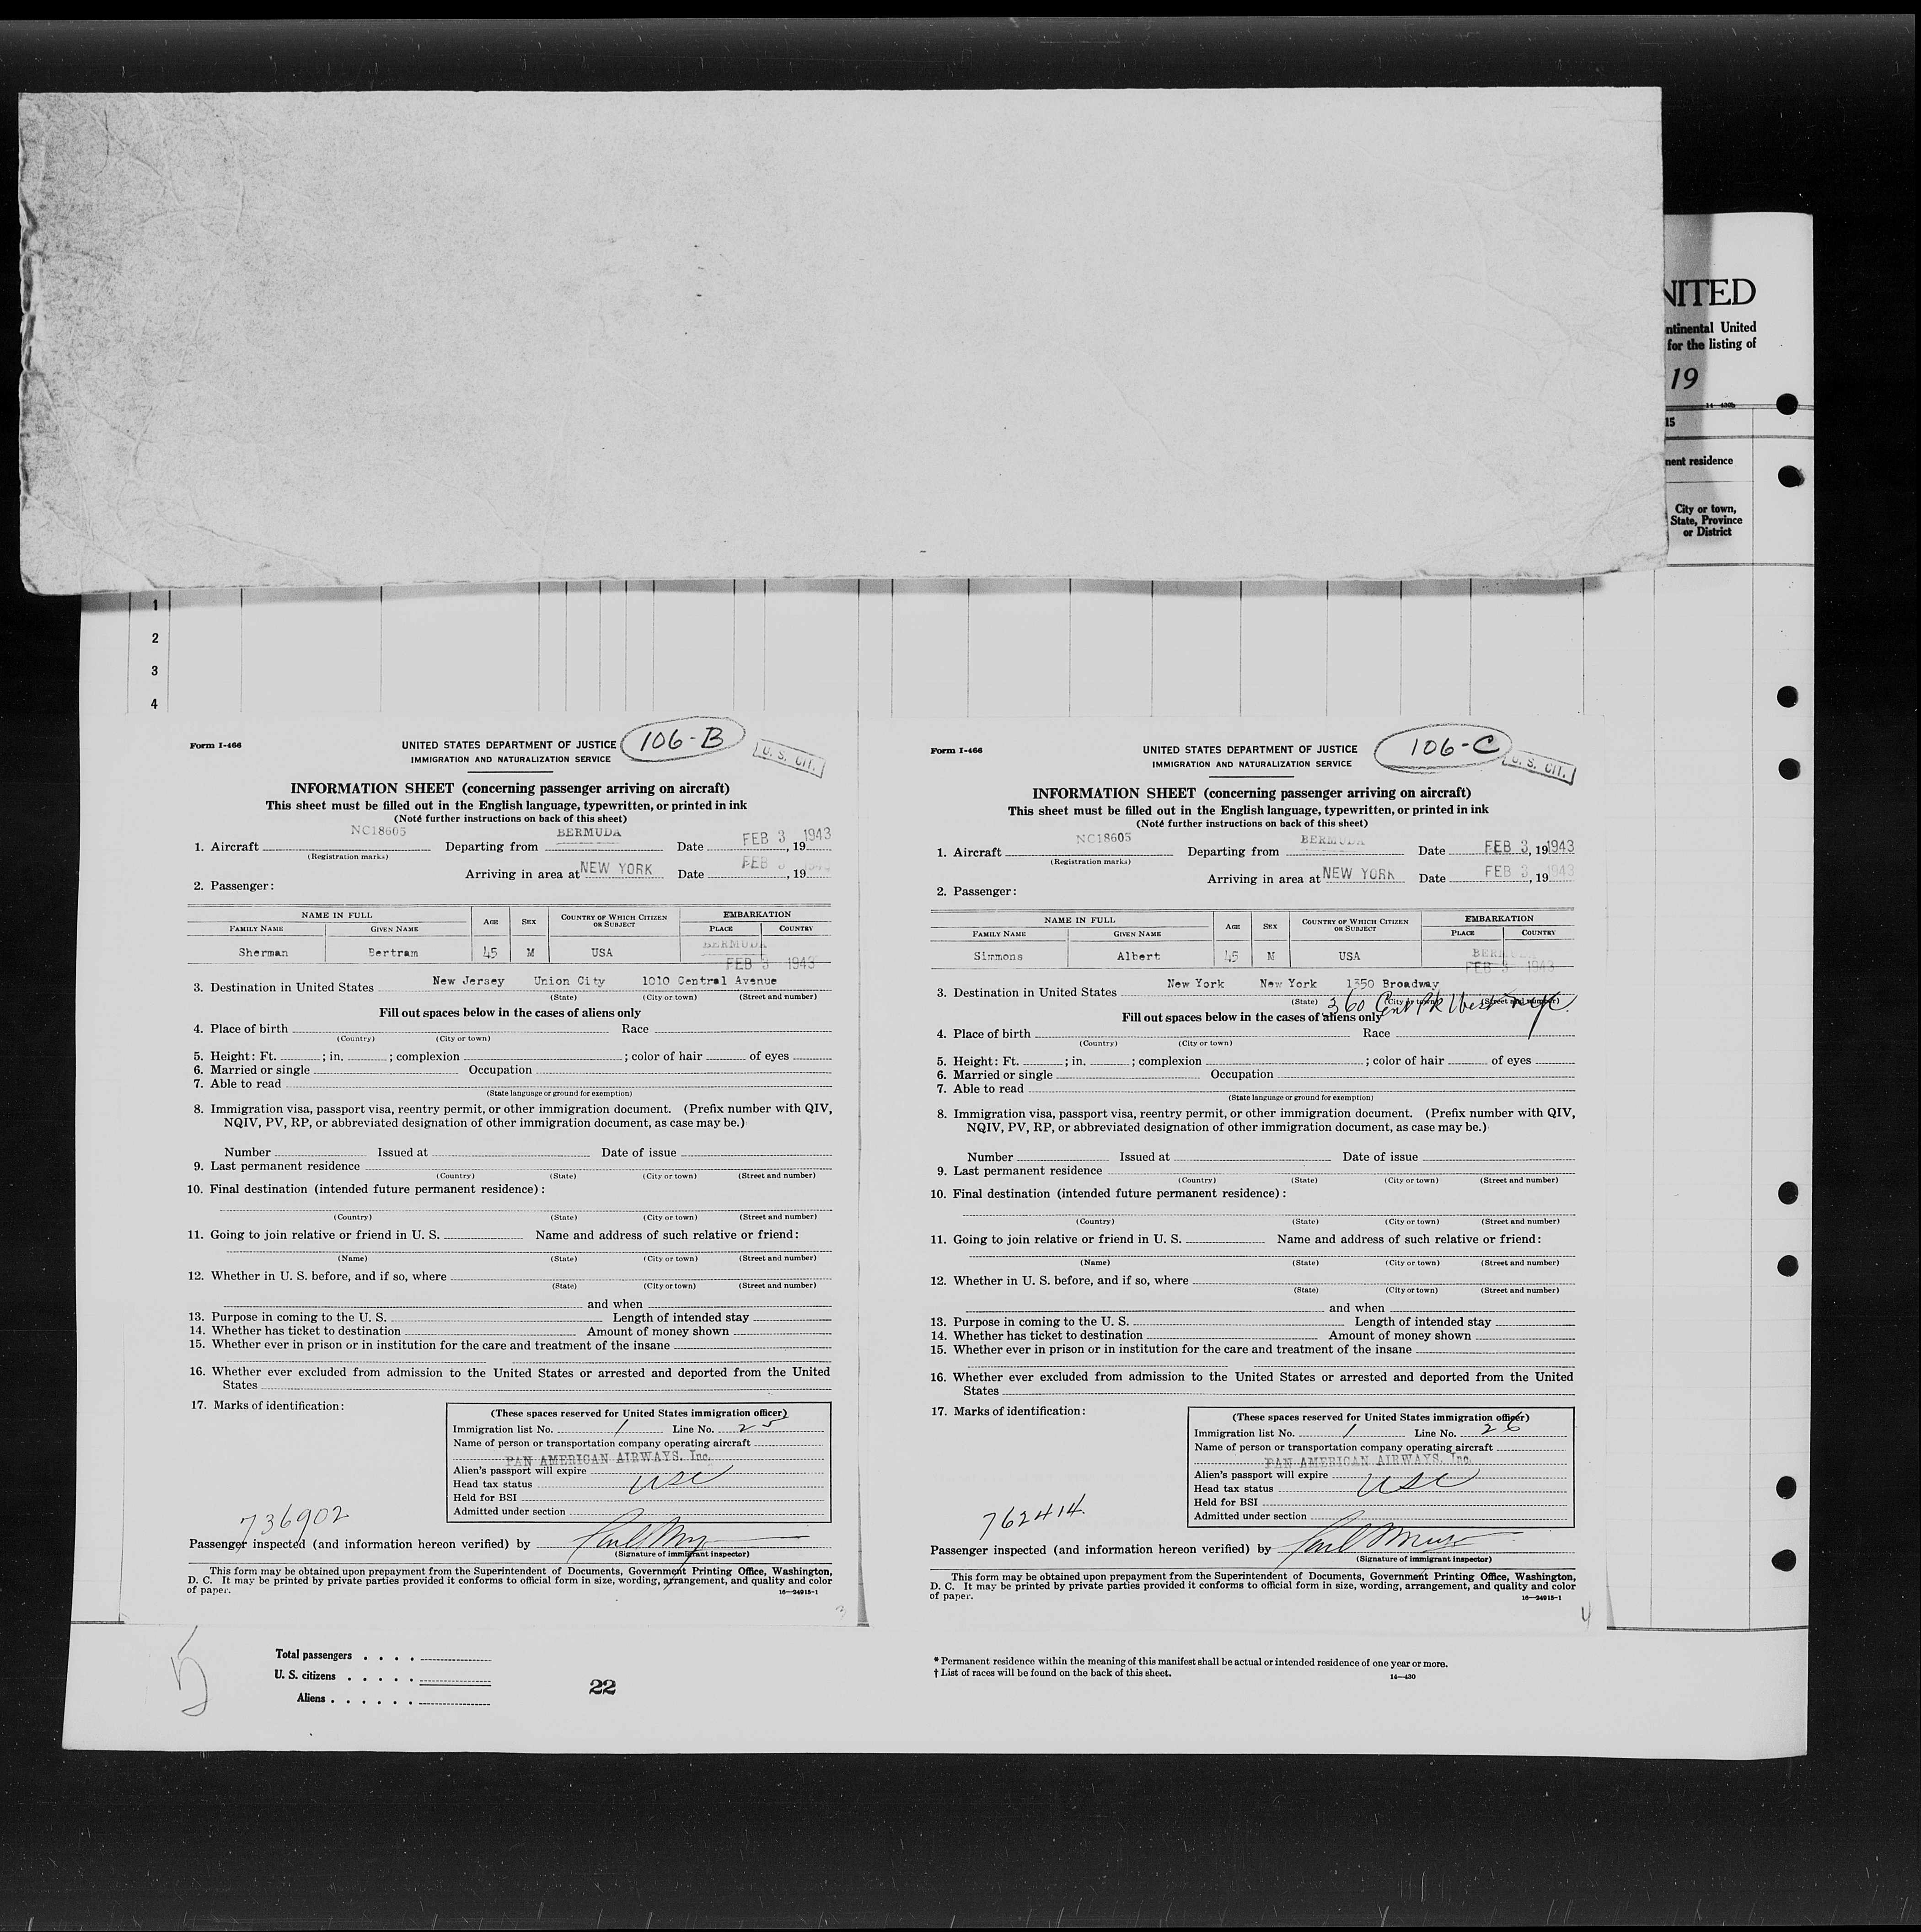 NITED
ntinental United
for the listing of
19
14—430b
15
nent residence
City or town,
State, Province
or District
1
2
3
4
Form I-466
UNITED STATES DEPARTMENT OF JUSTICE
106-B
U. S. CIT.
IMMIGRATION AND NATURALIZATION SERVICE
INFORMATION SHEET (concerning passenger arriving on aircraft)
This sheet must be filled out in the English language, typewritten, or printed in ink
(Note further instructions on back of this sheet)
1. Aircraft NC18605 Departing from BERMUDA Date FEB 3, 19 1943
(Registration marks)
Arriving in area at NEW YORK Date FEB 3, 19
2. Passenger:
NAME IN FULL AGE SEX COUNTRY OF WHICH CITIZEN OR SUBJECT EMBARKATION
FAMILY NAME GIVEN NAME PLACE COUNTRY
Sherman Bertram 45 M USA BERMUDA
FEB 3 1943
3. Destination in United States New Jersey Union City 1010 Central Avenue
(State) (City or town) (Street and number)
Fill out spaces below in the cases of aliens only
4. Place of birth Race
(Country) (City or town)
5. Height: Ft. ; in. ; complexion ; color of hair of eyes
6. Married or single Occupation
7. Able to read
(State language or ground for exemption)
8. Immigration visa, passport visa, reentry permit, or other immigration document. (Prefix number with QIV,
NQIV, PV, RP, or abbreviated designation of other immigration document, as case may be.)
Number Issued at Date of issue
9. Last permanent residence
(Country) (State) (City or town) (Street and number)
10. Final destination (intended future permanent residence):
(Country) (State) (City or town) (Street and number)
11. Going to join relative or friend in U. S. Name and address of such relative or friend:
(Name) (State) (City or town) (Street and number)
12. Whether in U. S. before, and if so, where
(State) (City or town) (Street and number)
and when
13. Purpose in coming to the U. S. Length of intended stay
14. Whether has ticket to destination Amount of money shown
15. Whether ever in prison or in institution for the care and treatment of the insane
16. Whether ever excluded from admission to the United States or arrested and deported from the United
States
17. Marks of identification:
(These spaces reserved for United States immigration officer)
Immigration list No. 1 Line No. 25
Name of person or transportation company operating aircraft
PAN AMERICAN AIRWAYS, Inc.
Alien's passport will expire
Head tax status USC
Held for BSI
Admitted under section
736902
Passenger inspected (and information hereon verified) by
(Signature of immigrant inspector)
This form may be obtained upon prepayment from the Superintendent of Documents, Government Printing Office, Washington,
D. C. It may be printed by private parties provided it conforms to official form in size, wording, arrangement, and quality and color
of paper.
16—24915-1
3
Form I-466
UNITED STATES DEPARTMENT OF JUSTICE
106-C
U. S. CIT.
IMMIGRATION AND NATURALIZATION SERVICE
INFORMATION SHEET (concerning passenger arriving on aircraft)
This sheet must be filled out in the English language, typewritten, or printed in ink
(Note further instructions on back of this sheet)
1. Aircraft NC18605 Departing from BERMUDA Date FEB 3, 19 1943
(Registration marks)
Arriving in area at NEW YORK Date FEB 3, 19 1943
2. Passenger:
NAME IN FULL AGE SEX COUNTRY OF WHICH CITIZEN OR SUBJECT EMBARKATION
FAMILY NAME GIVEN NAME PLACE COUNTRY
Simmons Albert 45 M USA BERMUDA
FEB 3 1943
3. Destination in United States New York New York 1350 Broadway
(State) (City or town) (Street and number)
360 Cent Pk West NYC.
Fill out spaces below in the cases of aliens only
4. Place of birth Race
(Country) (City or town)
5. Height: Ft. ; in. ; complexion ; color of hair of eyes
6. Married or single Occupation
7. Able to read
(State language or ground for exemption)
8. Immigration visa, passport visa, reentry permit, or other immigration document. (Prefix number with QIV,
NQIV, PV, RP, or abbreviated designation of other immigration document, as case may be.)
Number Issued at Date of issue
9. Last permanent residence
(Country) (State) (City or town) (Street and number)
10. Final destination (intended future permanent residence):
(Country) (State) (City or town) (Street and number)
11. Going to join relative or friend in U. S. Name and address of such relative or friend:
(Name) (State) (City or town) (Street and number)
12. Whether in U. S. before, and if so, where
(State) (City or town) (Street and number)
and when
13. Purpose in coming to the U. S. Length of intended stay
14. Whether has ticket to destination Amount of money shown
15. Whether ever in prison or in institution for the care and treatment of the insane
16. Whether ever excluded from admission to the United States or arrested and deported from the United
States
17. Marks of identification:
(These spaces reserved for United States immigration officer)
Immigration list No. 1 Line No. 26
Name of person or transportation company operating aircraft
PAN AMERICAN AIRWAYS, Inc.
Alien's passport will expire
Head tax status USC
Held for BSI
Admitted under section
762414.
Passenger inspected (and information hereon verified) by
(Signature of immigrant inspector)
This form may be obtained upon prepayment from the Superintendent of Documents, Government Printing Office, Washington,
D. C. It may be printed by private parties provided it conforms to official form in size, wording, arrangement, and quality and color
of paper.
16—24915-1
4
5
Total passengers . . . .
U. S. citizens . . . . .
Aliens . . . . . .
22
* Permanent residence within the meaning of this manifest shall be actual or intended residence of one year or more.
† List of races will be found on the back of this sheet.
14—430